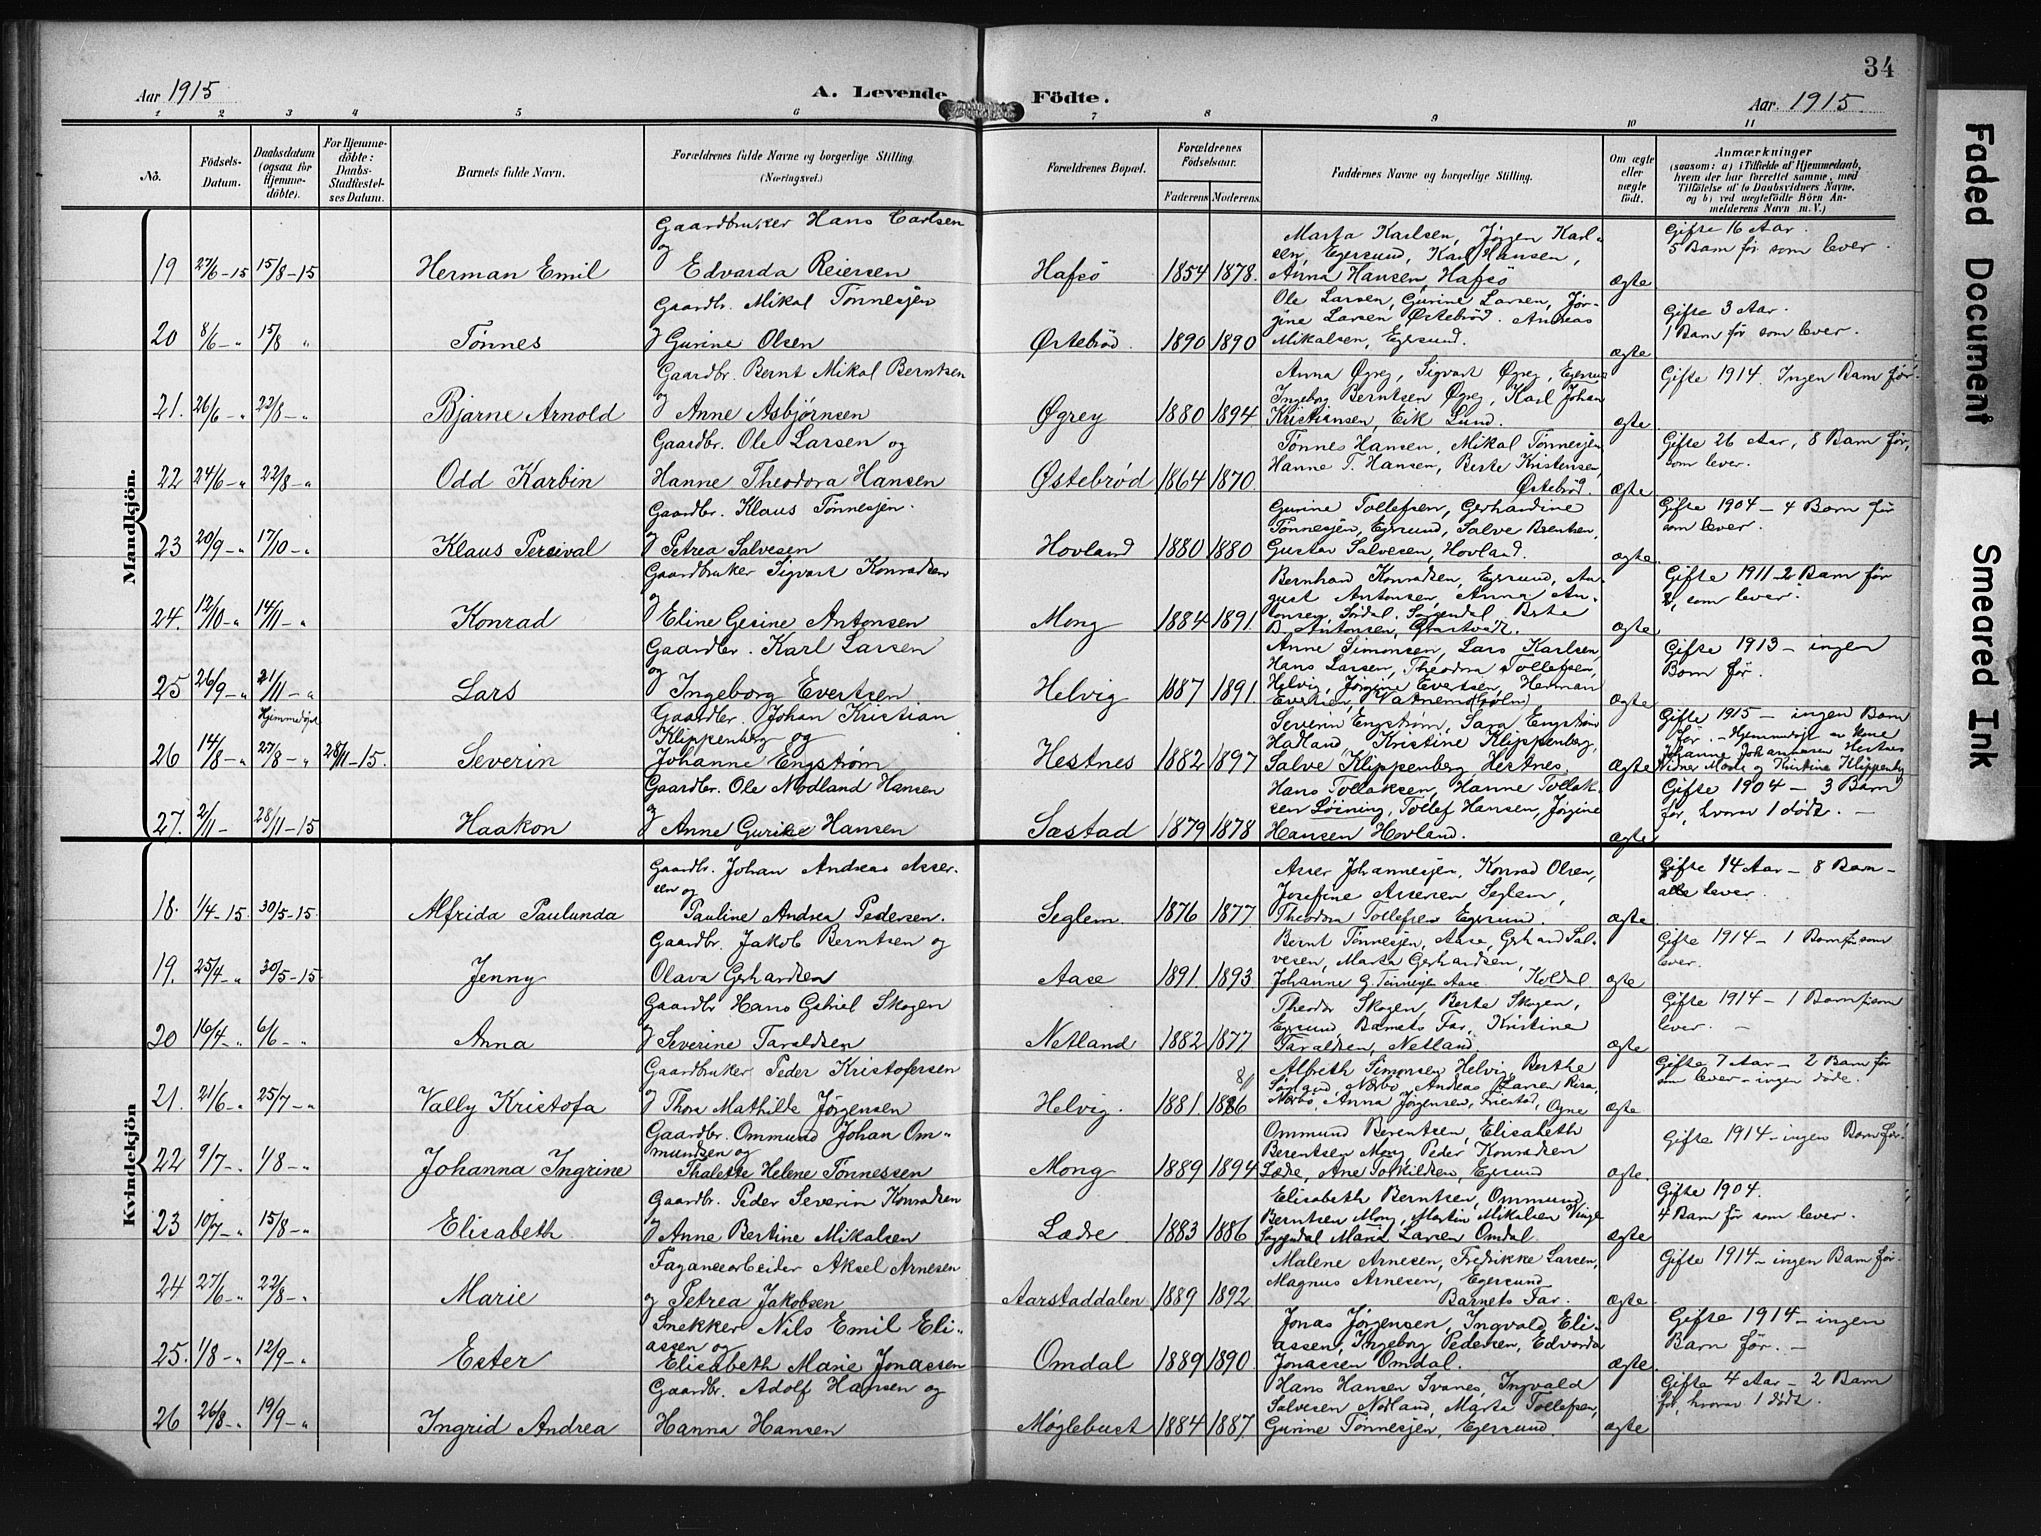 34
Aar 1915
A. Levende
Födte.
Aar. 1915
1 2 3 4 5 6 7 8 9 10 11
No.
Födsels-
Datum.
Daabsdatum
(ogsaa for
Hjemme-
döbte).
For Hjemme-
döbte:
Daabs-
Stadfæstel-
ses Datum.
Barnets fulde Navn.
Forældrenes fulde Navne og borgerlige Stilling.
(Næringsvei.)
Forældrenes Bopæl.
Forældrenes
Födselsaar.
Faderens Moderens.
Faddernes Navne og borgerlige Stilling.
Om ægte
eller
uægte
født.
Anmærkninger
(saasom: a) i Tilfælde af Hjemmedaab,
hvem der har forrettet samme, med
Tilföielse af to Daabsvidners Navne,
og b) ved uægtefödte Börn An-
melderens Navn m. V.)
Mandkjön.
19 27/6-15 15/8-15 Herman Emil
Gaardbruker Hans Carlsen
og
Edvarda Reiersen
Hafsö 1854 1878.
Marta Karlsen, Jörgen Karl-
sen, Egersund, Karl Hansen,
Anna Hansen, Hafsö
ægte
Gifte 16 Aar.
5 Barn før som lever.
20 8/6-" 15/8 " Tönnes
Gaardbr. Mikal Tönnesjen
og Gurine Olsen
Østebröd. 1890 1890
Ole Larsen, Gurine Larsen, Jør-
gine Larsen Østebröd. Andreas
Mikalsen, Egersund.
ægte
Gifte 3 Aar.
1 Barn før som lever.
21. 26/6-" 22/8-" Bjarne Arnold
Gaardbr. Bernt Mikal Berntsen
og
Anne Asbjørnsen
Øgrey 1880 1894
Anna Øgrey, Sigvart Øgrey, Egersund
Ingeborg Berntsen Øgrey, Karl Johan
Kristiansen, Eik Lund.
ægte
Gifte 1914. Ingen Barn før.
22 24/6-" 22/8-" Odd Karbin
Gaardbr. Ole Larsen og
Hanne Theodora Hansen
Østebrød 1864 1870.
Tønnes Hansen, Mikal Tønnesjen
Hanne T. Hansen, Berte Kristensen,
Østebrød.
ægte
Gifte 26 Aar, 8 Barn før,
som lever.
23 20/9-" 17/10-" Klaus Persival
Gaardbr. Klaus Tönnesjen.
og Petrea Salvesen
Hovland 1880 1880
Gurine Tollefsen, Gerhardine
Tønnesjen, Egersund, Salve Berntsen,
Gustav Salvesen, Hovland.
ægte
Gifte 1904 - 4 Barn før
som lever.
24. 12/10-" 14/11-" Konrad
Gaardbruker Sigvart Konradsen
og
Eline Gesine Antonsen
Mong 1884 1891
Bernhard Konradsen, Egersund, Au-
gust Antonsen, Anna An-
tonsen, Sirdal, Sogendal. Berte
B. Antonsen,
ægte
Gifte 1911 - 2 Barn før
som lever.
25 26/9-" 21/11-" Lars
Gaardbr. Karl Larsen
og
Ingeborg Evertsen
Helvig 1887 1891.
Anne Simonsen, Lars Karlsen,
Hans Larsen, Theodora Tollefsen,
Helvig, Jørgine Evertsen, Herman
Evertsen, Vatnemo
ægte
Gifte 1913 - ingen
Barn før.
Hjemmedøpt
26 14/8-" 27/8-" 28/11-15. Severin
Gaardbr. Johan Kristian
Klippenberg og
Johanne Engstrøm
Hestnes 1882 1897
Severin Engstrøm, Sara Engstrøm
Kristine Klippenberg,
Salve Klippenberg Hestnes
ægte
Gifte 1915 - ingen Barn
før. - Hjemmedøpt av
Johanne Johannesen Hestnes
og Kristine Klippenberg
27. 2/11- 28/11-15 Haakon
Gaardbr. Ole Nodland Hansen
og Anne Gurine Hansen
Sæstad 1879 1878
Hans Tollaksen, Hanne Tollak-
sen Løining, Tollef Hansen, Jørgine
Hansen Hovland.
ægte
Gifte 1904 - 3 Barn
før, hvorav 1 dødt. -
Kvindekjön
18. 1/4-15. 30/5-15. Alfrida Paulunda
Gaardbr. Johan Andreas Asser-
sen og
Pauline Andrea Pedersen.
Seglem 1876 1877
Asser Johannesjen, Konrad Olsen,
Josefine Assersen Seglem,
Theodora Tollefsen Egersund
ægte
Gifte 14 Aar - 8 Barn -
alle lever.
19. 25/4-" 30/5-15 Jenny
Gaardbr. Jakob Berntsen og
Olava Gerhardsen
Aase 1891 1893
Bernt Tønnesjen, Aase, Gerhard Sal-
vesen, Marta Gerhardsen,
Johanne G. Tønnesjen Aase. Koldal
ægte
Gifte 1914 - 1 Barn før som
lever.
20 16/4-" 6/6-" Anna
Gaardbr Hans Gabriel Skogen
og Severine Taraldsen
Netland 1882 1877
Theodor Skogen, Berta Skogen,
Egersund Barnets Far, Kristine
Taraldsen, Netland
ægte
Gifte 1914 - 1 Barn før som
lever. -
21. 21/6-" 25/7-" Vally Kristofa
Gaardbruker Peder Kristofersen
og Thora Mathilde Jørgensen
Helvig. 1881 1886
Albreth Simonsen Helvig, Berthe
Nærbø, Andreas Larsen Risa,
Nærbø, Anna Jørgensen, Friestad, Ogne
ægte
Gifte 7 Aar - 2 Barn før
som lever - ingen døde.
22 9/7-" 1/8-" Johanna Ingrine
Gaardbr. Ommund Johan Om-
mundsen og
Thalette Helene Tönnessen
Mong 1889 1894
Ommund Berentsen, Elisabeth
Berentsen Mong, Peder Konradsen
Lædre, Ane Torkildsen, Egersund
ægte.
Gifte 1914 - ingen Barn før.
23 10/7-" 15/8-" Elisabeth
Gaardbr. Peder Severin Konradsen
og Anne Bertine Mikalsen
Lædre 1883 1886
Elisabeth Berntsen, Ommund
Berntsen Mong, Martin Mikalsen Vinge
Sogndal Maria Larsen Omdal.
ægte
Gifte 1904.
4 Barn før som lever.
24 27/6-" 22/8-" Marie
Fayancearbeider Aksel Arnesen
og Petrea Jakobsen
Aarstaddalen 1889 1892
Malene Arnesen, Fredrikke Larsen,
Magnus Arnesen, Egersund
Barnets Far.
ægte.
Gifte 1914 - ingen Barn før.
25. 1/8-" 12/9-" Ester
Snekker Nils Emil Eli-
assen og
Elisabeth Marie Jonassen
Omdal 1889 1890.
Jonas Jørgensen, Ingvald Eli-
assen, Ingeborg Pedersen, Edvarda
Jonassen Omdal.
ægte.
Gifte 1914 - ingen
Barn før. -
26 26/8-" 19/9-" Ingrid Andrea
Gaardbr. Adolf Hansen og
Hanna Hansen
Møglebust 1884 1887.
Hans Hansen Svanes, Ingvald
Salvesen Nodland, Marta Tollefsen,
Gurine Tønnesjen, Egersund.
ægte
Gifte 4 Aar - 2 Barn
før, hvorav 1 dødt.
Faded Document
Smeared Ink